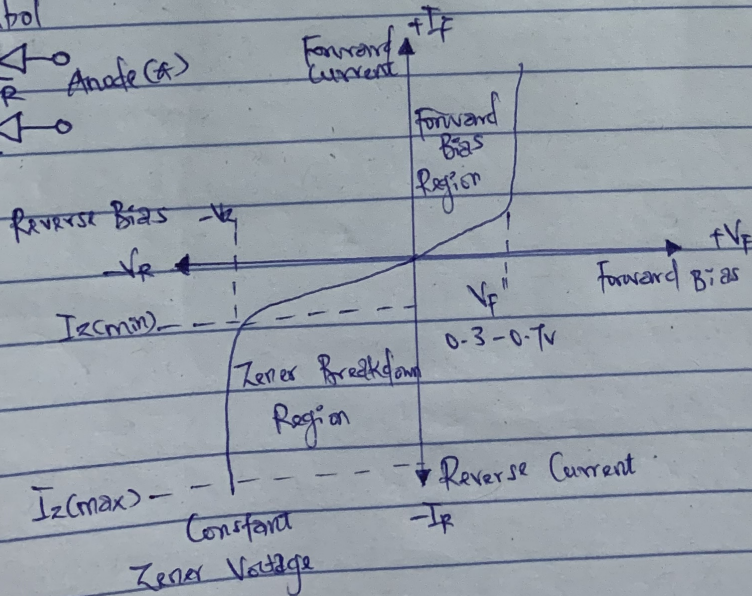 bol
+IF
Forward
Current
Anode (A)
R
Forward
Bias
Region
Reverse Bias
-Vz
-VR
+VF
Forward Bias
Iz(min)
VF
0.3-0.7v
Zener Breakdown
Region
Iz(max)
Reverse Current
-IR
Constant
Zener Voltage